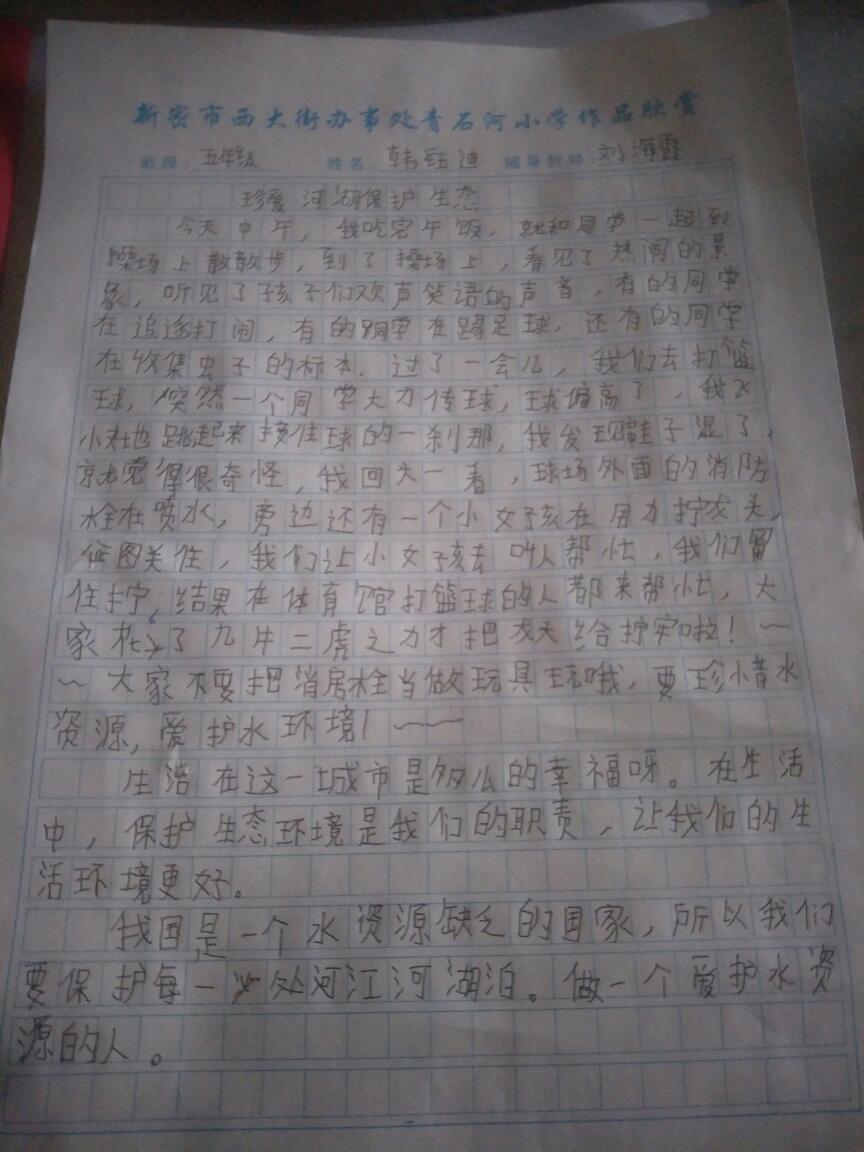 新密市西大街办事处青石河小学作品欣赏
班级：五年级 姓名：韩钰迪 辅导教师：刘海霞
珍爱河湖保护生态
今天中午，我吃完午饭，就和同学一起到
操场上散散步，到了操场上，看见了热闹的景
象，听见了孩子们欢声笑语的声音，有的同学
在追逐打闹，有的同学在踢足球，还有的同学
在收集虫子的标本．过了一会儿，我们去打篮
球，突然一个同学大力传球，球偏高了，我
跳起来接住球的一刹那，我发现鞋子湿了，
就觉得很奇怪，我回头一看，球场外面的消防
栓在喷水，旁边还有一个小女孩在用力拧龙头，
图关住，我们让小女孩去叫人帮忙，我们留
住拧，结果在体育馆打篮球的人都来帮忙，大
家花了九牛二虎之力才把龙头给拧牢啦！～
～大家不要把消房栓当做玩具玩哦，要珍惜水
资源，爱护水环境！～～
生活在这一城市是多么的幸福呀。在生活
中，保护生态环境是我们的职责，让我们的生
活环境更好。
我国是一个水资源缺乏的国家，所以我们
要保护每一处河江河湖泊。做一个爱护水资
源的人。